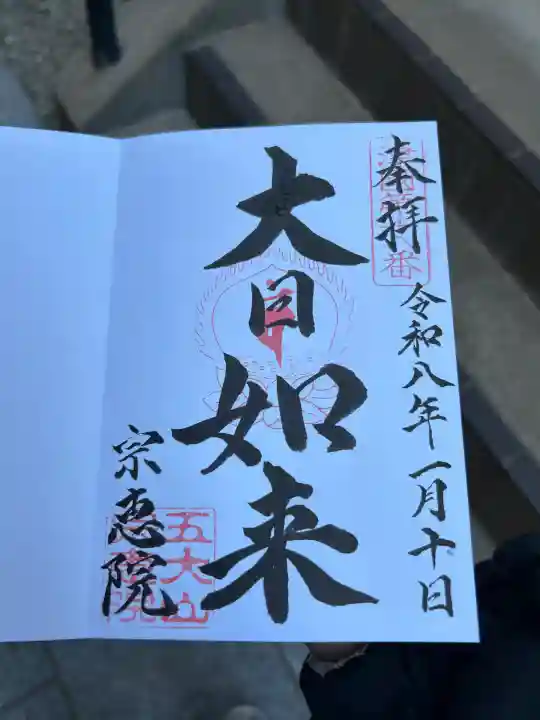 奉拝
令和八年一月十日
大日如来
宗恵院
五大山
番